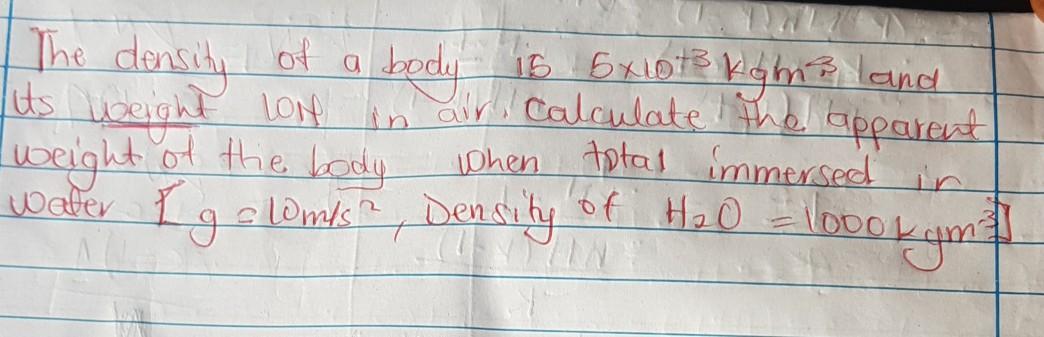 The density of a body is 5x10+3 kgm-3 and
its weight 10N in air. Calculate the apparent
weight of the body when total immersed in
water [g=10m/s², Density of H2O =1000kgm-3]